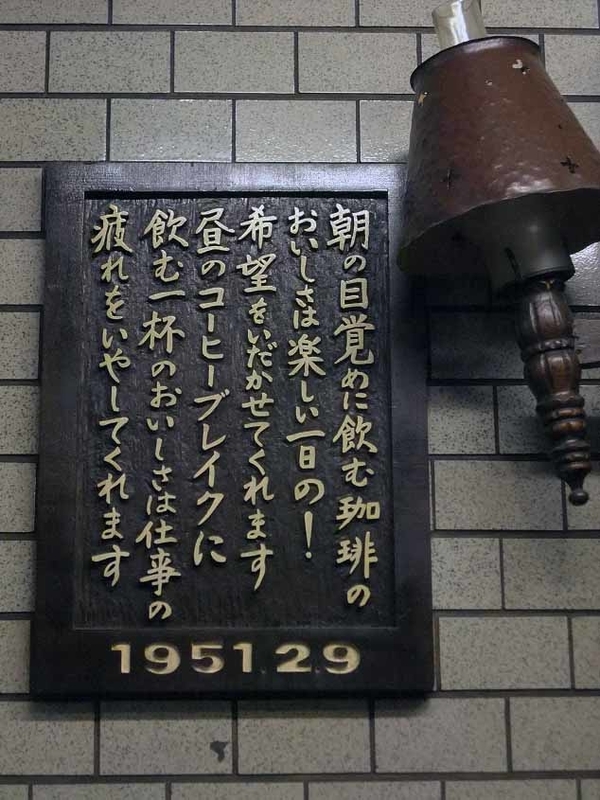 朝の目覚めに飲む珈琲の
おいしさは楽しい一日の！
希望をいだかせてくれます
昼のコーヒーブレイクに
飲む一杯のおいしさは仕事の
疲れをいやしてくれます
1951.2.9